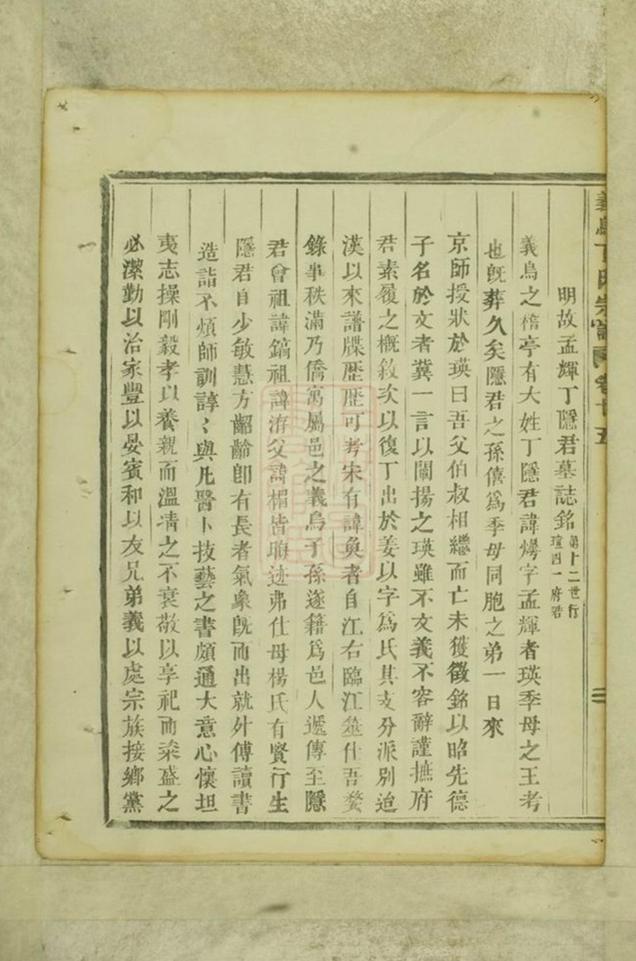 義烏丁氏宗譜 卷十五
明故孟輝丁隱君墓誌銘 第十二世行瓊四一府君
義烏之梧亭有大姓丁隱君諱燆字孟輝者瑛季母之王考
也旣葬久矣隱君之孫僖爲季母同胞之弟一日來
京師授狀於瑛曰吾父伯叔相繼而亡未獲徵銘以昭先德
子名於文者冀一言以闡揚之瑛雖不文義不容辭謹摭府
君素履之槪敘次以復丁出於姜以字爲氏其支分派別迨
漢以來譜牒歷歷可考宋有諱奐者自江右臨江筮仕吾婺
錄事秩滿乃僑寓屬邑之義烏子孫遂籍爲邑人遞傳至隱
君曾祖諱鎬祖諱洧父諱楣皆晦迹弗仕母楊氏有賢行生
隱君自少敏慧方齠齡卽有長者氣象旣而出就外傅讀書
造詣不煩師訓諄〻與凡醫卜技藝之書頗通大意心懷坦
夷志操剛毅孝以養親而溫凊之不衰敬以享祀而粢盛之
必潔勤以治家豐以宴賓和以友兄弟義以處宗族接鄉黨